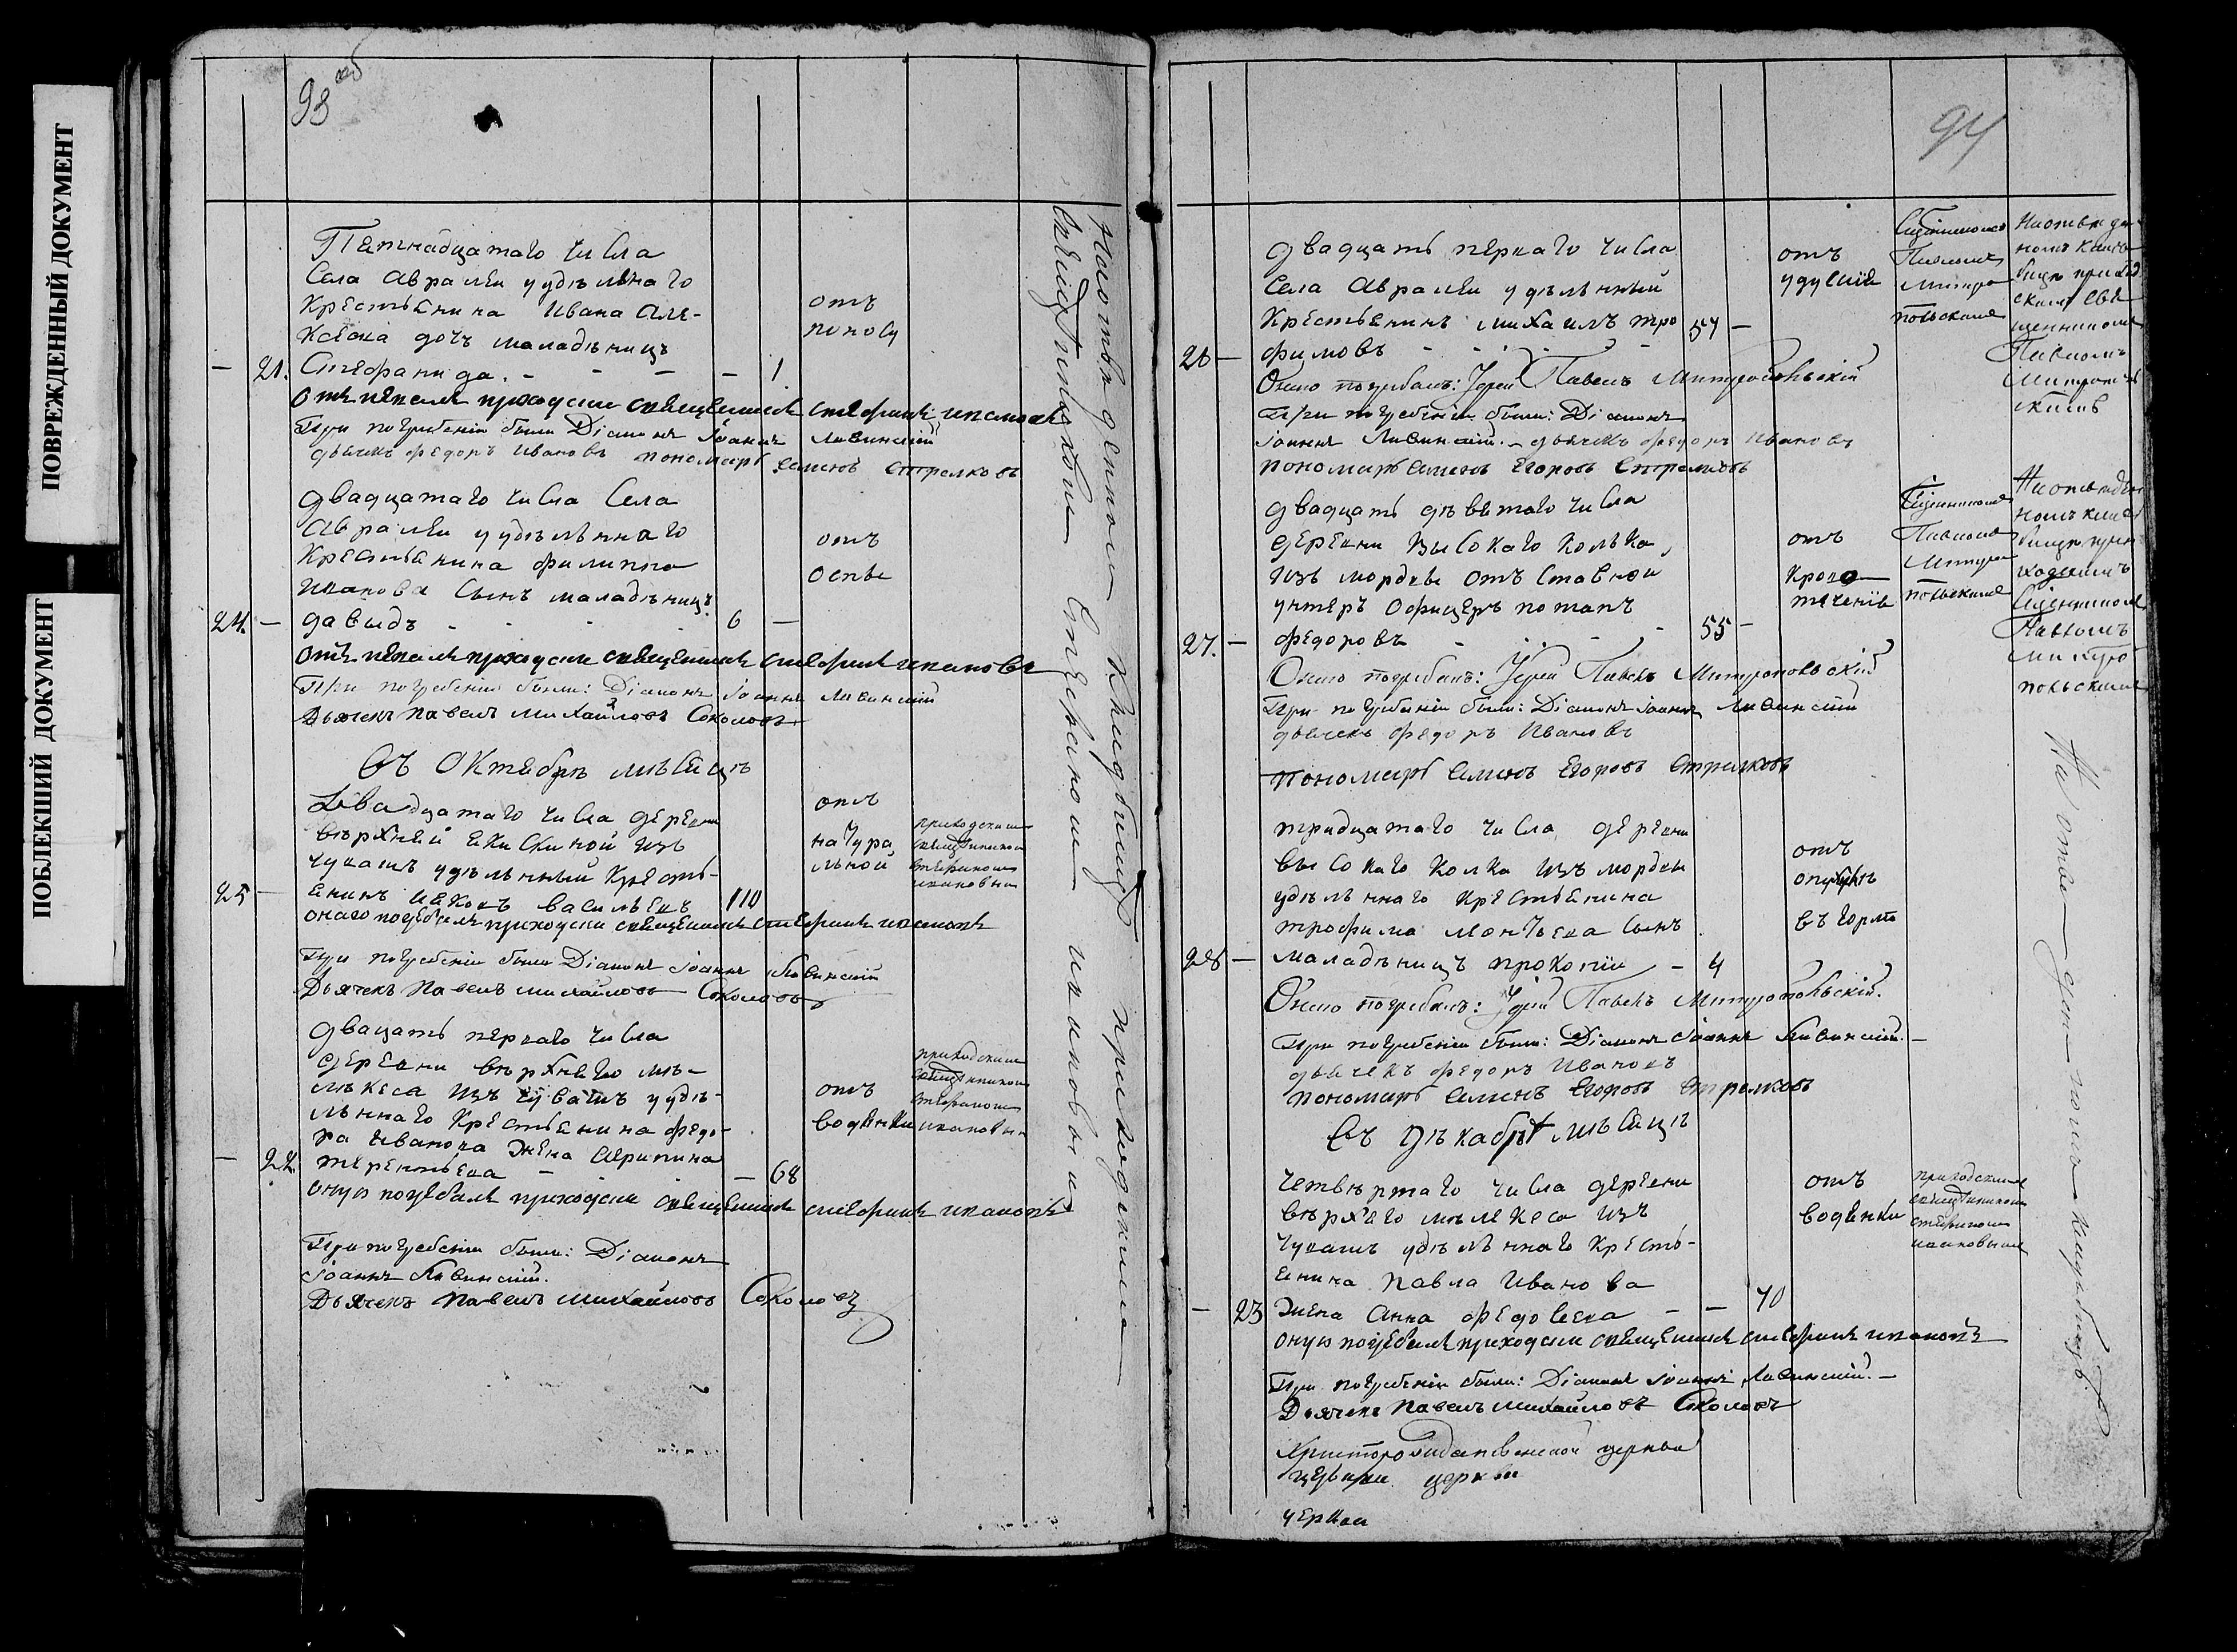 ПОВРЕЖДЕННЫЙ ДОКУМЕНТ
ПОБЛЕКШИЙ ДОКУМЕНТ
93 об
Петнадцатаго числа
села Авралеи удельнаго
крестьенина Ивана Але-
ксеева дочь маладѣницъ
21. Стефанида. 1
отъ
поносу
отпевалъ приходски священникъ стефанъ ивановъ
При погребеніи были Діаконъ Іоаннъ Ливинскій
дьячекъ федоръ Ивановъ пономарь семенъ Стрелковъ
двадцатаго числа села
Авралеи удѣльннаго
крестьенина филиппа
Иванова сынъ маладѣницъ
24. давыдъ 6
отъ
оспы
отпевалъ приходски священникъ стефанъ ивановъ
При погребении были: Діаконъ Іоаннъ Ливинскій
Дьячекъ Павелъ Михайловъ Соколовъ
въ Октебрѣ мѣсецѣ
двадцатаго числа деревни
вѣрхней Якиской изъ
чувашъ удѣльнный кресть-
25 енинъ Иековъ васильевъ 110
отъ
натура
льной
приходскимъ
священникомъ
стефаномъ
ивановым
онаго погребалъ приходски священникъ стефанъ ивановъ
При погребеніи были Діаконъ Іоаннъ Ливинскій
Дьячекъ Павелъ Михайловъ Соколовъ
двацать перваго числа
деревни вѣрхнего мѣ-
лѣкеса изъ чувашъ удѣ-
льннаго крестьенина федо-
ра Иванова жена Агрипина
22. терентьева 68
отъ
водянки
приходским
священником
стефаном
ивановым
оную погребалъ приходски священникъ стефанъ ивановъ
При погребеніи были: Діаконъ
Іоаннъ Ливинскій.
Дьячекъ Павелъ Михайловъ Соколовъ
На отведенномъ кладбищѣ приходскимъ
священникомъ Стефаномъ ивановым
94
двадцать перваго числа
села Авралеи удѣльнный
крестьенинъ михаилъ тро 54
26 фимовъ
отъ
удушія
Павломъ
Митро
польским
На отведе
номъ клад
бище приход
скимъ свя
щенником
Павломъ
Онаго погребалъ: Іерей Павелъ Митропольскій
При погребеніи были: Діаконъ
Іоаннъ Ливинскій. дьячекъ федоръ Ивановъ
пономарь Семенъ Егоровъ Стрелковъ
двадцать деветаго числа
деревни высокаго колька,
изъ мордвы отставной
унтеръ офицеръ потапъ
27. федоровъ 55
отъ
крово
теченія
священником
Павломъ
Митро
польским
На отведен
номъ клад
бище при
ходскимъ
священником
Павломъ
Митро
польским
Онаго погребалъ: Іерей Павелъ Митропольскій
При погребеніи были: Діаконъ Іоаннъ Ливинскій
дьячекъ федоръ Ивановъ
пономарь Семенъ Егоровъ Стрелковъ
тридцатаго числа деревни
высокаго колка изъ мордвы
удѣльннаго крестьенина
трофима сынъ
28 маладѣницъ прокопій 4
отъ
въ горлѣ
Онаго погребалъ: Іерей Павелъ Митропольскій.
При погребеніи были: Діаконъ Іоаннъ Ливинскій.
дьячекъ федоръ Ивановъ
пономарь Семенъ Егоровъ Стрелковъ
въ Дѣкабрѣ мѣсецѣ
четвѣртаго числа деревни
вѣрхъего мѣлекеса изъ
чувашъ удѣльннаго кресть-
енина Павла Иванова
23 жена Анна федосеева 70
отъ
водянки
приходским
священником
стефаном
ивановым
оную погребалъ приходски священникъ стефанъ ивановъ
При погребеніи были: Діаконъ Іоаннъ Ливинскій.
Дьячекъ Павелъ Михайловъ Соколовъ
церкви
церкви
На отведенномъ кладбище